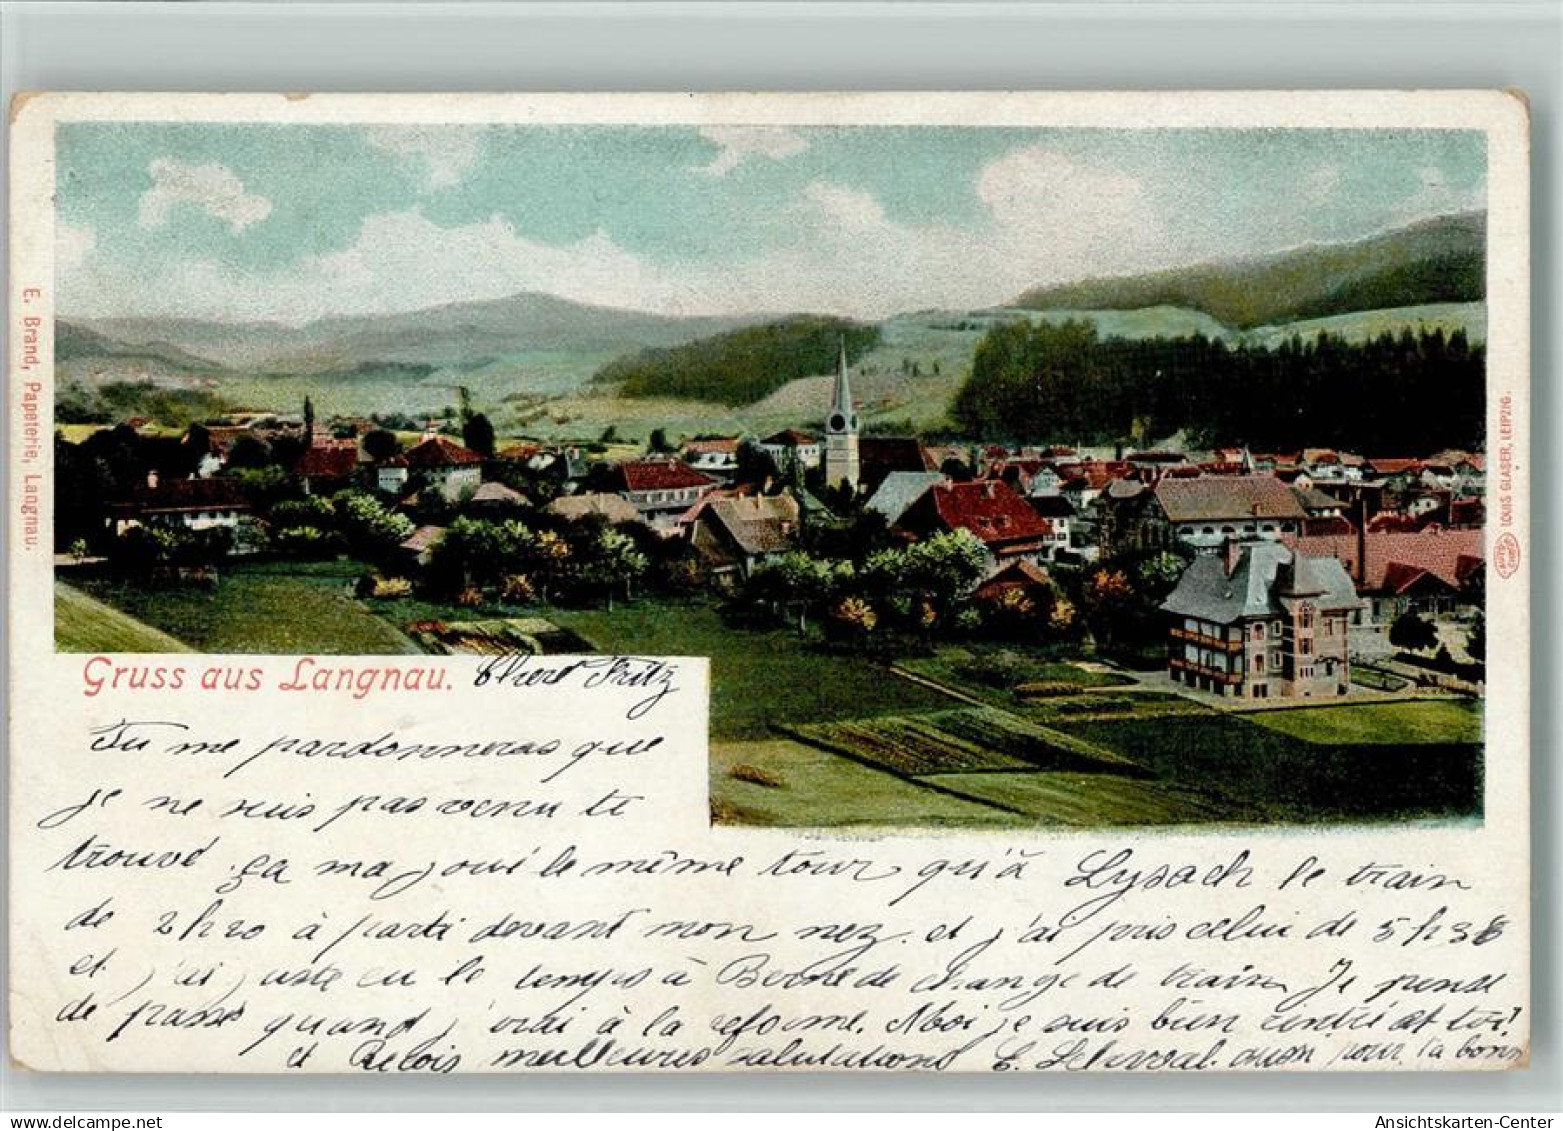 E. Brand, Papeterie, Langnau.
LOUIS GLASER, LEIPZIG.
Gruss aus Langnau. Cher Fritz
Tu me pardonneras que
je ne suis pas venu te
trouvé ça ma joué le même tour qu'à Lysach le train
de 2h20 à parti devant mon nez. et j'ai pris celui de 5h38
et j'ai juste eu le temps à Berne de change de train Je pense
de passé quand j'irai à la reforme. Moi je suis bien rentré et toi?
et Reçois meilleures salutations E. aussi pour ta bonne
www.delcampe.net
Ansichtskarten-Center